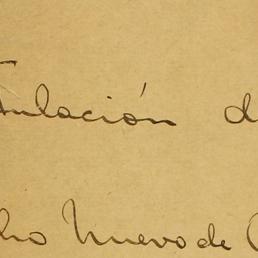 tulación d
cho Nuevo de